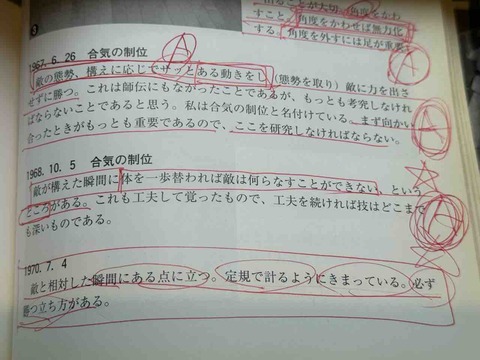 出ることが大切。角度をかわ
すこと。角度をかわせば無力化
する。角度を外すには足が重要
3
1967. 6. 26 合気の制位
A
敵の態勢、構えに応じてサッとある動きをし(態勢を取り)敵に力を出さ
せずに勝つ。これは師伝にもなかったことであるが、もっとも考究しなけれ
ばならないことであると思う。私は合気の制位と名付けている。まず向かい
合ったときがもっとも重要であるので、ここを研究しなければならない。
A
1968. 10. 5 合気の制位
敵が構えた瞬間に体を一歩替われば敵は何らなすことができない、という
ところがある。これも工夫して覚ったもので、工夫を続ければ技はどこまで
も深いものである。
A
1970. 7. 4
敵と相対した瞬間にある点に立つ。定規で計るようにきまっている。必ず
勝つ立ち方がある。